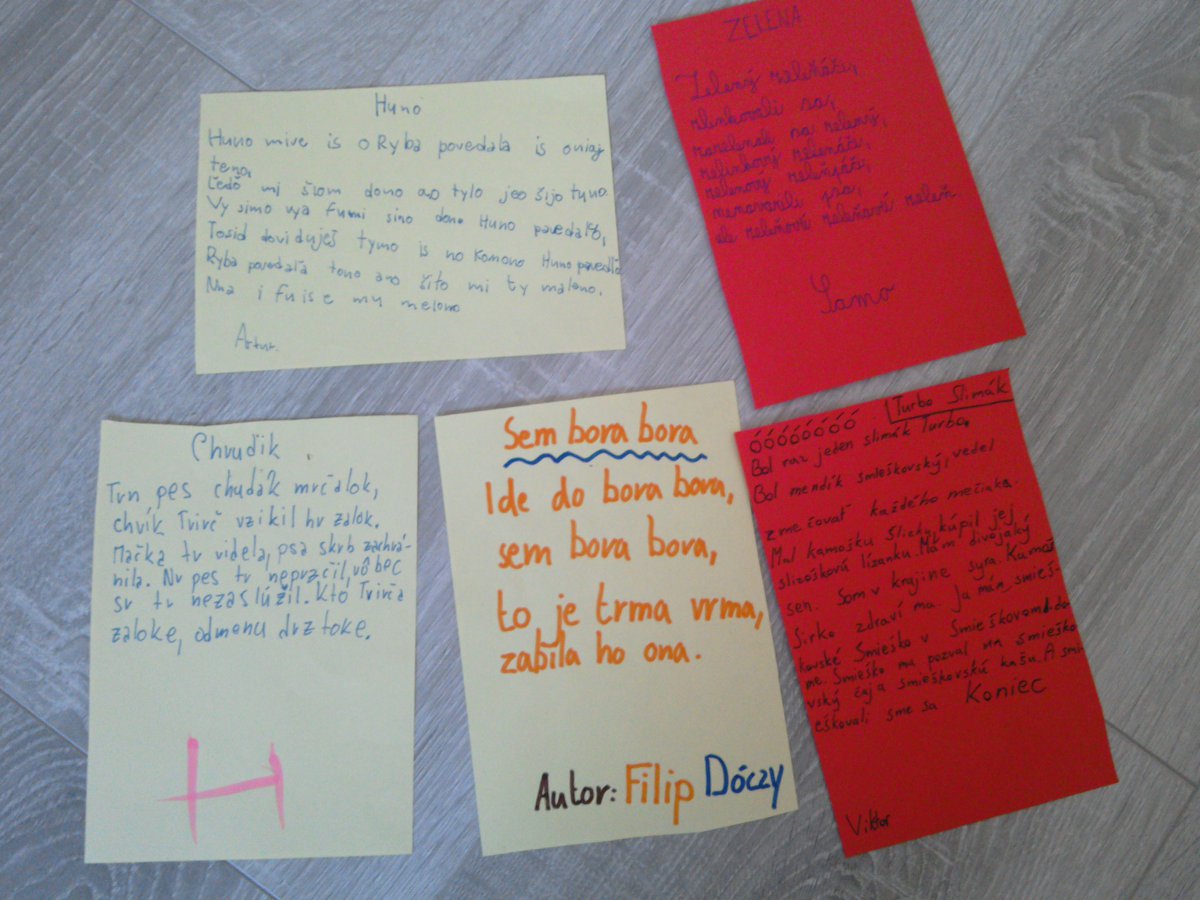 Huno
Huno mive is o Ryba povedala is oniaj
teno,
Čedő mi šlom dono ano tylo jeo šijo tyno.
Vy simo vya fumi sino dono Huno povedalo,
Tosid doviduješ tymo is no Komono Huno povedlo
Ryba povedala tono ano šito mi ty malono.
Nna i fuise mu melono
Artur.
ZELENÁ
Zelený zelenáči,
zlinkovali sa,
zozelenali sa zelený,
zelenáči,
menovoreli pra,
ale zeleňoví zeleňaví zeleň
Samo
Chruďik
Tvn pes chuďák mrčalok,
chvík Tvivč vzikil hv zalok.
Mačka tv videla, psa skvb zachrá-
nila. Nv pes tv neprzčil, vôbec
sv tv nezaslúžil. Kto Tvivča
zaloke, odmenu drz toke.
H
Sem bora bora
Ide do bora bora,
sem bora bora,
to je trma vrma,
zabila ho ona.
Autor: Filip Dóczy
Turbo Slimák
óóóóóóóó
Bol raz jeden slimák Turbo.
Bol mendík smieškovský, vedel
zmečovať každého mečiaka.
Mal kamošku Slizky, kúpil jej
slizoškovú lízanku. Mám divojaký
sen. Som v krajine syra. Kamoš
Sirko zdraví ma. Ja mán smieš-
kovské Smieško v Smieškovomd do-
me. Smieško ma pozval na smieško
vský čaj a smieškovskú kašu. A smi-
eškovali sme sa Koniec
Viktor